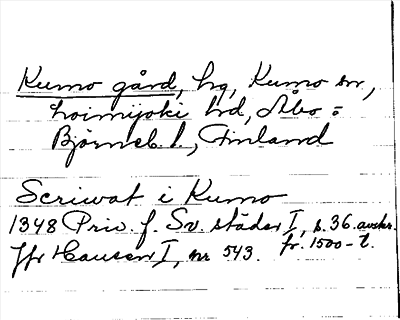 Kumo gård, hg, Kumo sn,
Loimijoki hd, Åbo =
Björneb. l., Finland
Scriwat i Kumo
1348 Priv. f. Sv. städer I, s. 36. avskr.
fr. 1500-t.
Jfr Hausen I, nr 543.